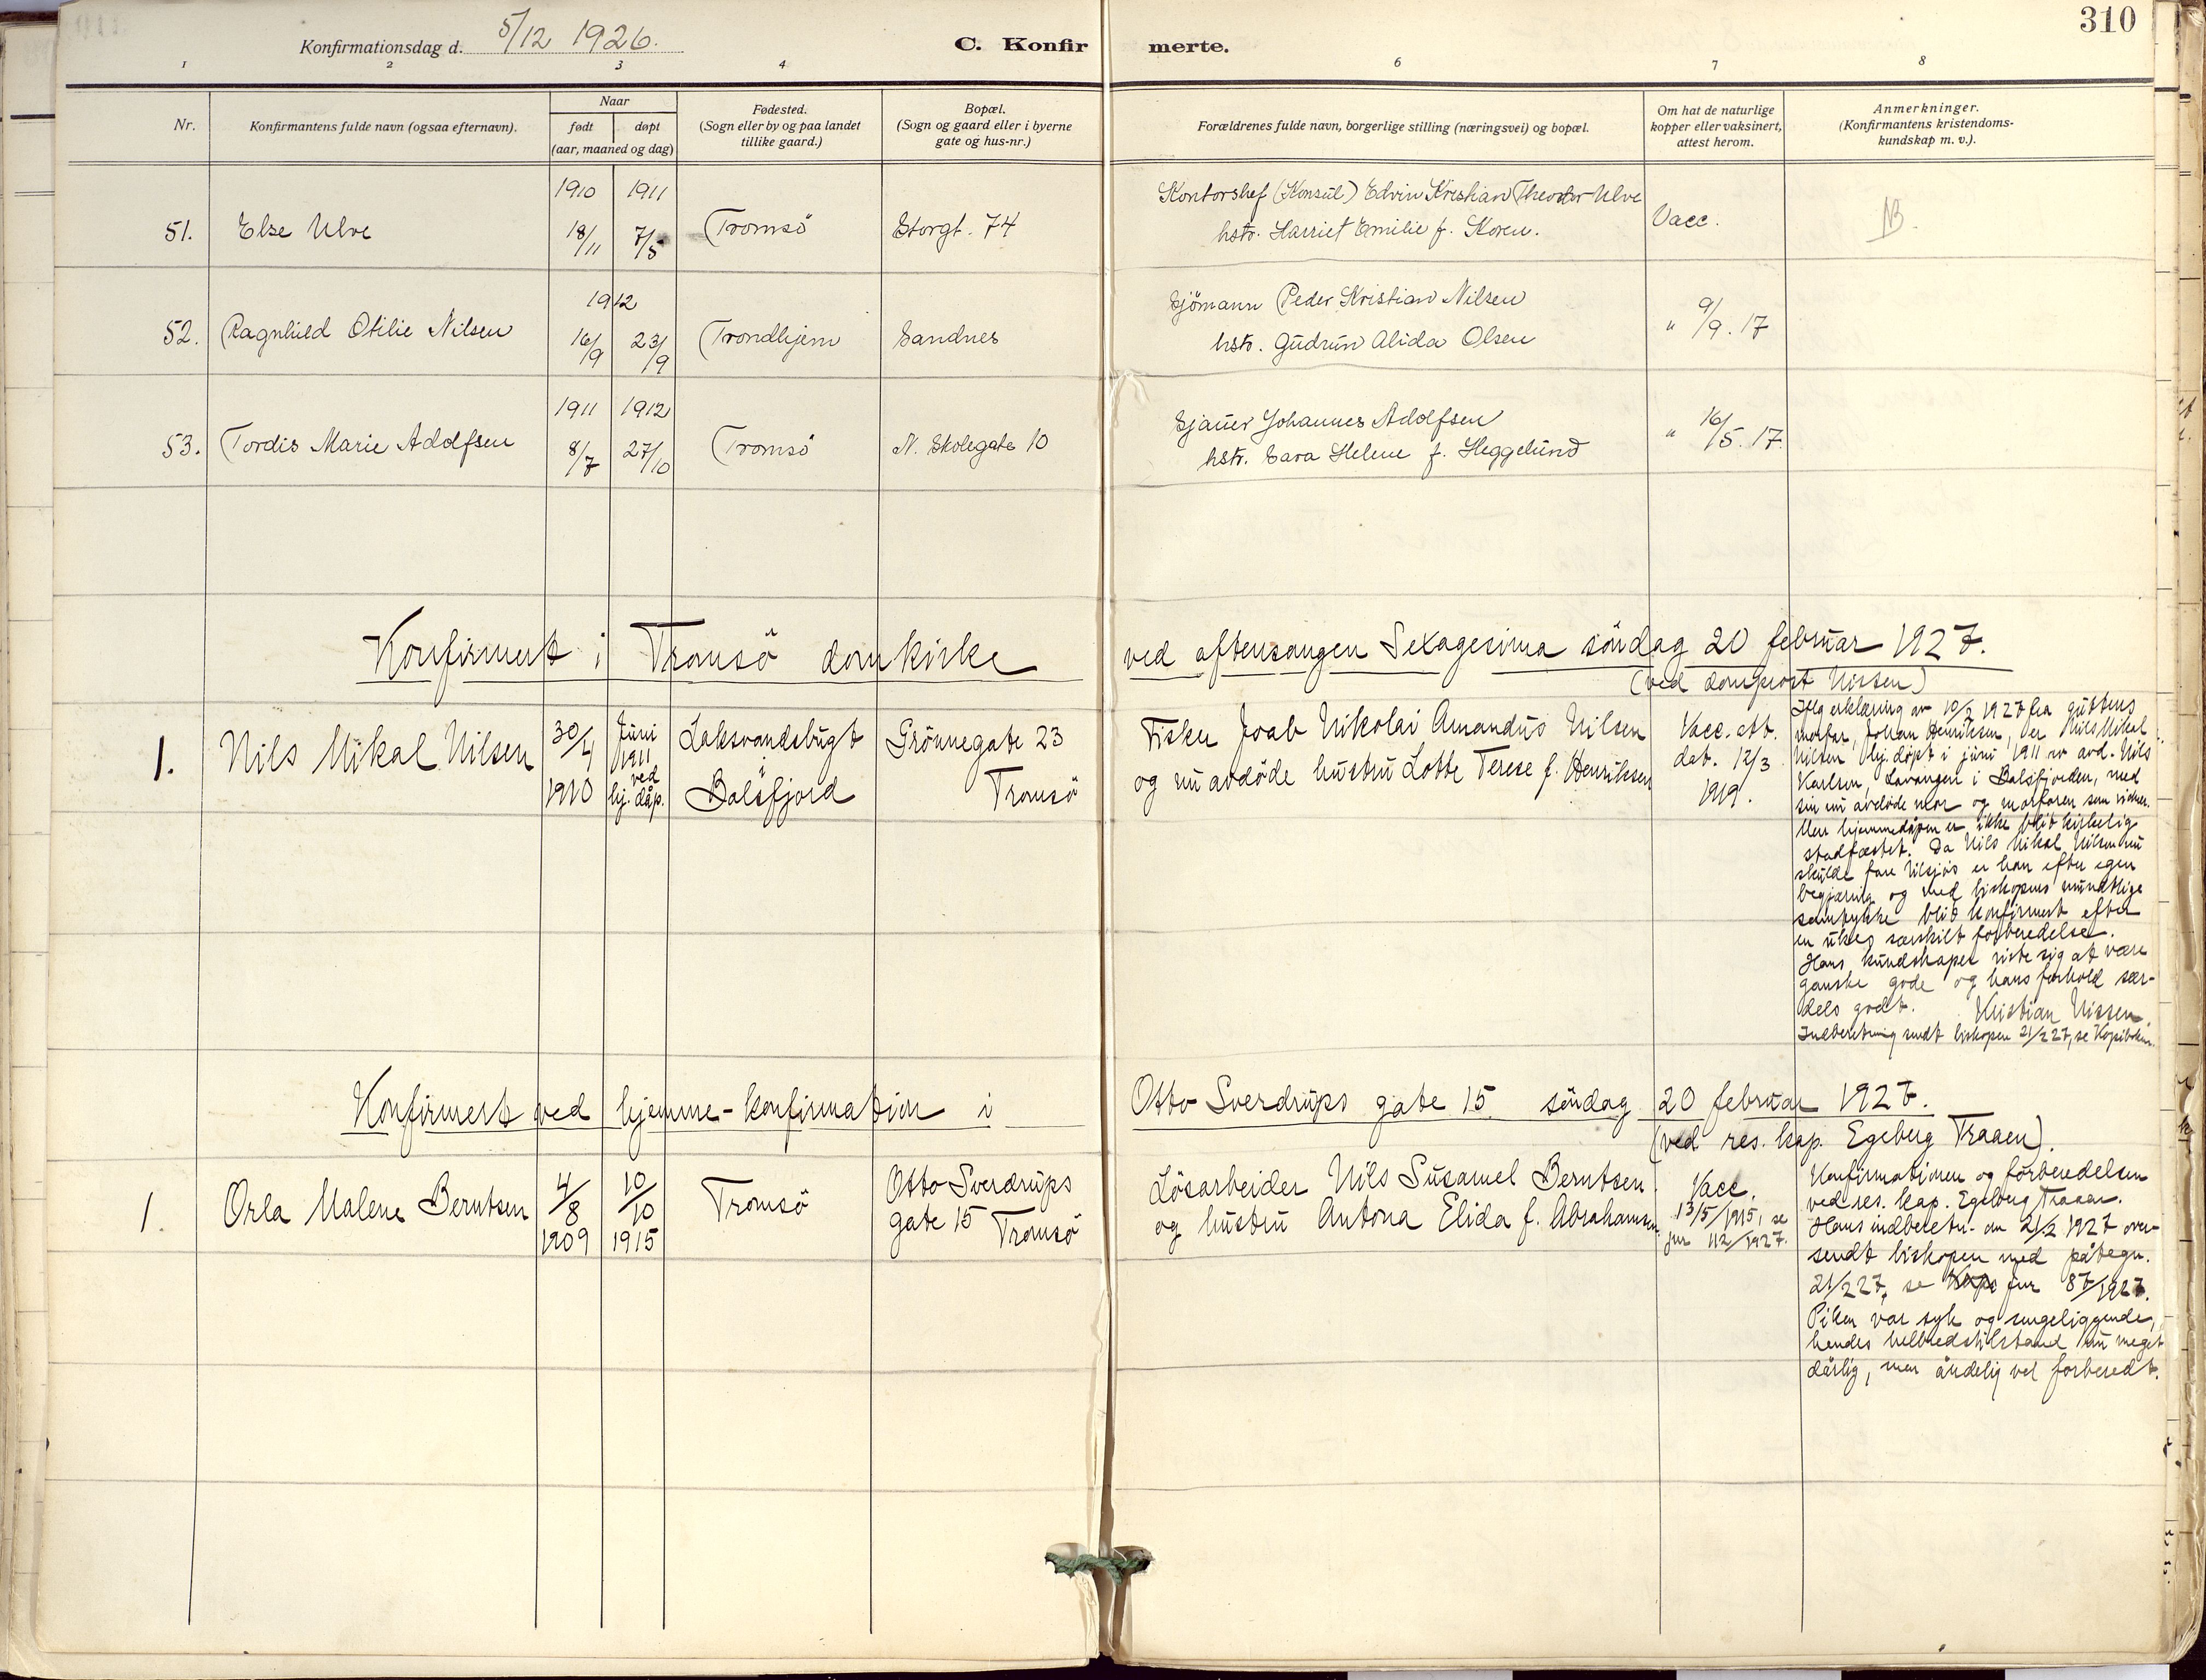 310
Konfirmationsdag d. 5/12 1926.
C. Konfirmerte.
1 2 3 4 6 7 8
Nr.
Konfirmantens fulde navn (ogsaa efternavn).
Naar
født
døpt
(aar, maaned og dag)
Fødested.
(Sogn eller by og paa landet
tillike gaard.)
Bopæl.
(Sogn og gaard eller i byerne
gate og hus-nr.)
Forældrenes fulde navn, borgerlige stilling (næringsvei) og bopæl.
Om hat de naturlige
kopper eller vaksinert,
attest herom.
Anmerkninger.
(Konfirmantens kristendoms-
kundskap m. v.).
51. Else Ulve
1910 18/11
1911 7/5
Tromsö
Storgt. 74
Kontorshef (Konsul) Edvin Kristian Theodor Ulve
hstr. Harriet Emilie f. Koren.
Vacc.
NB.
52. Ragnhild Otilie Nilsen
1912
16/9 23/9
Trondhjem
Sandnes
Sjömann Peder Kristian Nilsen
hstr. Gudrun Alida Olsen
" 9/9. 17
53. Tordis Marie Adolfsen
1911 8/7
1912 27/10
Tromsö
N. Skolegate 10
Sjauer Johannes Adolfsen
hstr. Sara Helene f. Heggelund
" 16/5. 17.
Konfirmert i Tromsö domkirke ved aftensangen Sexagesima söndag 20 februar 1927.
(ved domprost Nissen)
1. Nils Mikal Nilsen
30/4
1910
Juni
1911
ved
hj. dåp.
Laksvandsbugt
Balsfjord
Grönnegate 23
Tromsö
Fisker Joab Nikolai Amandus Nilsen
og nu avdöde hustru Lotte Terese f. Henriksen
Vacc. att.
dat. 12/3
1919.
Ifg erklæring av 10/2 1927 fra guttens
morfar, Johan Henriksen, er Nils Mikal
Nilsen hj. døpt i juni 1911 av avd. Nils
Karlsen, Lavangen i Balsfjorden, med
sin nu avdöde mor og morfaren som vidner.
Men hjemmedåpen er ikke blit kirkelig
stadfæstet. Da Nils Mikal Nilsen nu
skulde fare tilsjøs er han efter egen
begjæring og med biskopens mundtlige
samtykke blit konfirmert efter
en ukes særskilt forberedelse.
Hans kundskaper viste sig at være
ganske gode og hans forhold sær-
deles godt. Kristian Nissen.
Indberetning sendt biskopen 21/2 27, se Kopiboken.
Konfirmert ved hjemme-konfirmation i Otto Sverdrups gate 15 söndag 20 februar 1927.
(ved res. kap. Egeberg Traaen).
1. Orla Malene Berntsen
4/8
1909
10/10
1915
Tromsö
Otto Sverdrups
gate 15 Tromsö
Lösarbeider Nils Susamel Berntsen
og hustru Antona Elida f. Abrahamsen
Vacc.
13/5 1915, se
jnr 112/1927.
Konfirmationen og forberedelsen
ved res. kap. Egeberg Traaen.
Hans indberetn. av 21/2 1927 over-
sendt biskopen med påtegn.
21/2 27, se jnr 87/1927.
Piken var syk og sengeliggende,
hendes helbredstilstand nu meget
dårlig, men åndelig vel forberedt.